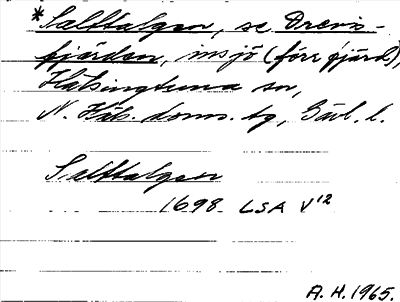 *Salttalgen, se Drevis-
fjärden, insjö (förr fjärd),
Hälsingtuna sn,
N. Häls. doms. tg, Gävl. l.
Salttalgen
1698. LSA V12
A. H. 1965.